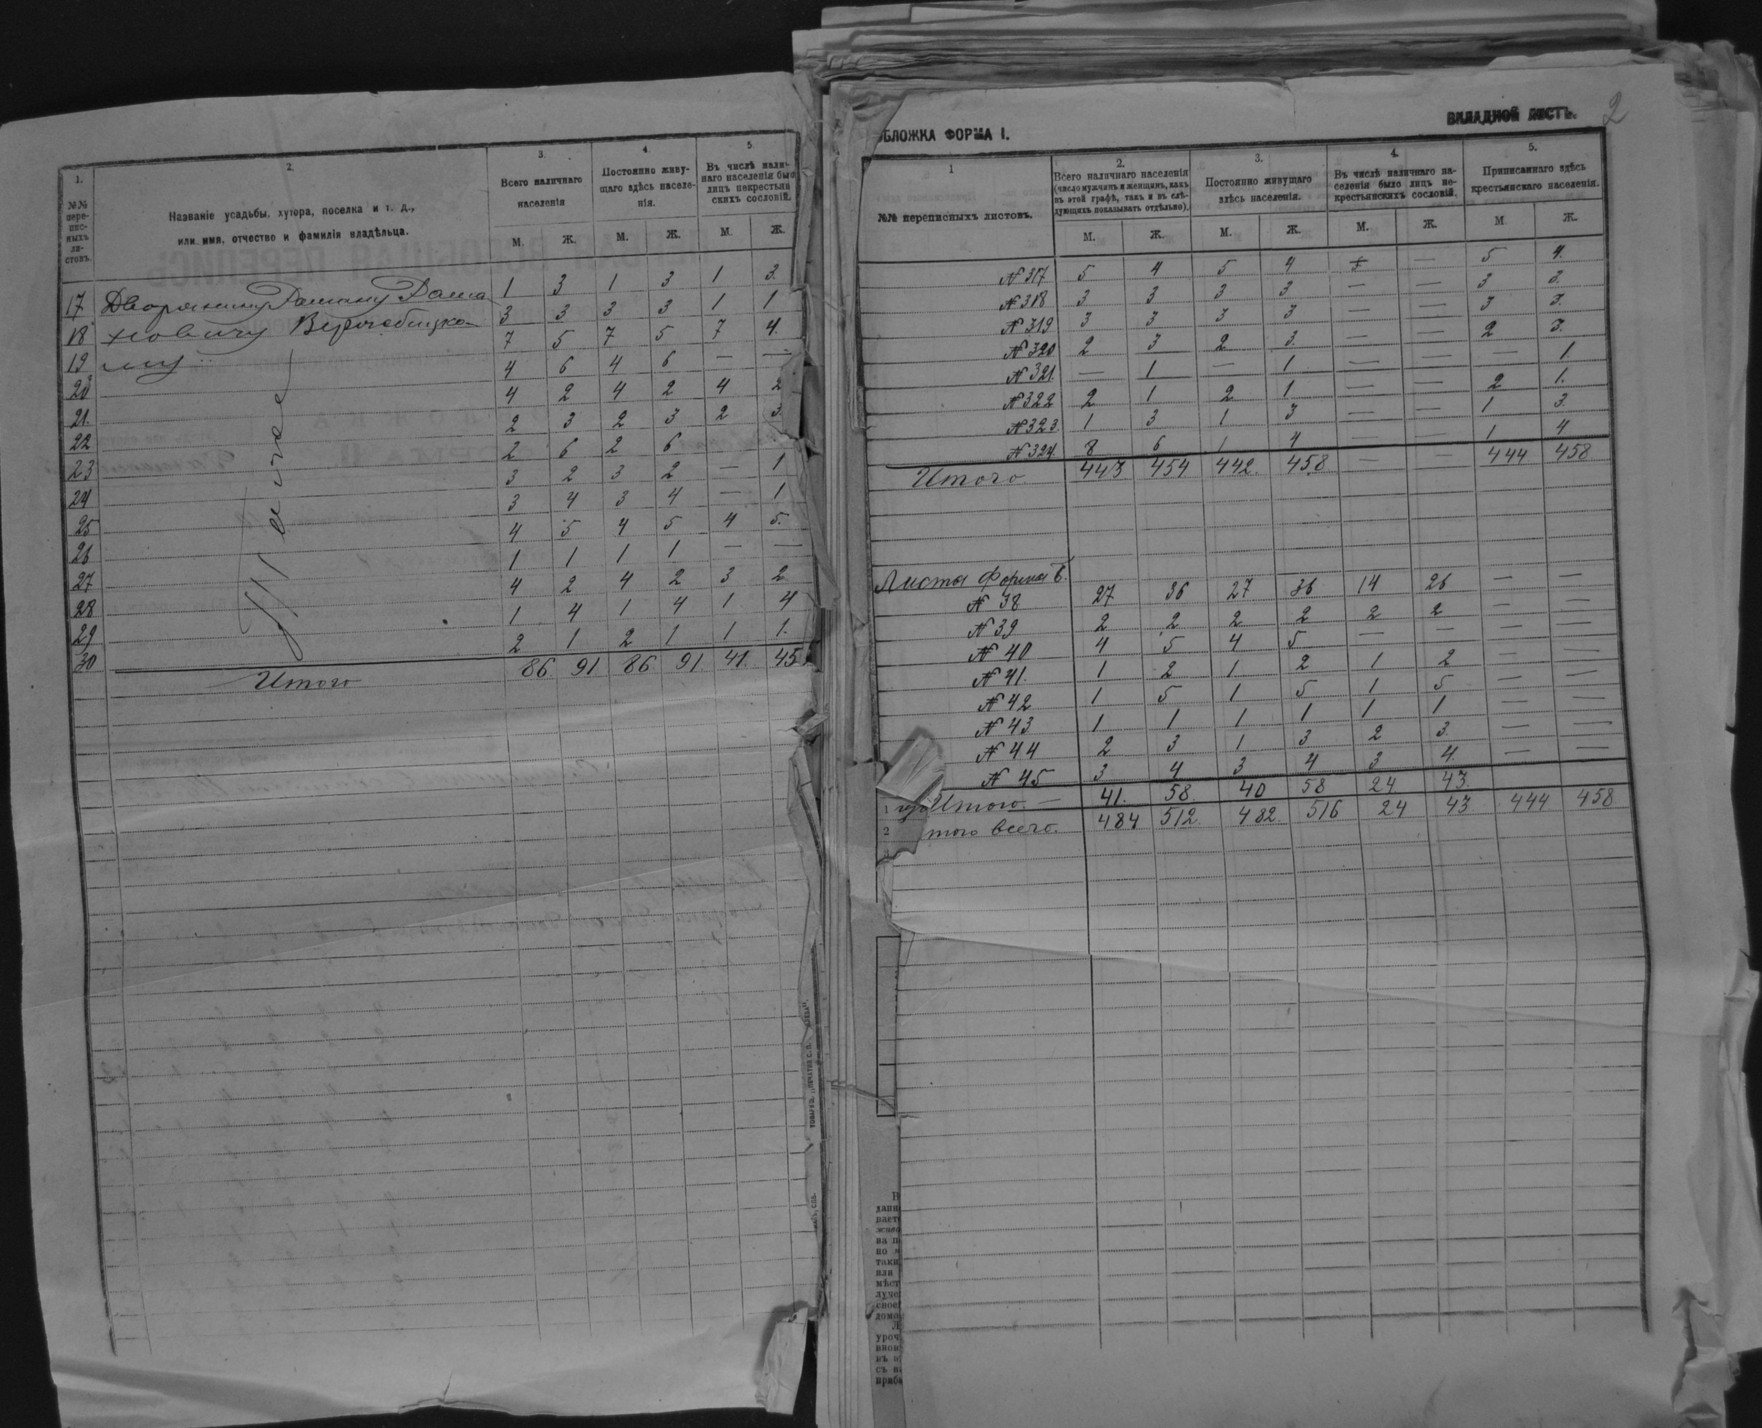 1. 2. 3. 4. 5.
№№ пере-пис-ныхъ ли-стовъ.
Названіе усадьбы, хутора, поселка и т. д.,
или имя, отчество и фамилія владѣльца.
Всего наличнаго населенія
Постоянно живу-щаго здѣсь населе-нія.
Въ числѣ налич-наго населенія было лицъ некрестьян-скихъ сословій.
М. Ж. М. Ж. М. Ж.
17 Дворянину 1 3 1 3 1 3.
18 новичу 3 3 3 3 1 1
19 му 7 5 7 5 7 4.
20 4 6 4 6 — —
21. 4 2 4 2 4 2
22 2 3 2 3 2 3.
23 2 6 2 6
24 3 2 3 2 — 1
25 3 4 3 4 — 1
26 4 5 4 5 4 5.
27 1 1 1 1 — —
28 4 2 4 2 3 2
29 1 4 1 4 1 4
30 2 1 2 1 1 1.
Итого 86 91 86 91 41 45
2
ВКЛАДНОЙ ЛИСТЪ.
БЛОЖКА ФОРМА I.
1 2. 3. 4. 5.
№№ переписныхъ листовъ.
Всего наличнаго населенія (число мужчинъ и женщинъ, какъ въ этой графѣ, такъ и въ слѣ-дующихъ показывать отдѣльно).
Постоянно живущаго здѣсь населенія.
Въ числѣ наличнаго на-селенія было лицъ не-крестьянскихъ сословій.
Приписаннаго здѣсь крестьянскаго населенія.
М. Ж. М. Ж. М. Ж. М. Ж.
№ 317 5 4 5 4 — 5 4.
№ 318 3 3 3 3 — — 3 3.
№ 319 3 3 3 3 — — 3 3.
№ 320 2 3 2 3. — — 2 3.
№ 321. — 1 — 1 — — — 1.
№ 322 2 1 2 1 — — 2 1.
№ 323. 1 3 1 3 — — 1 3.
№ 324. 8 6 1 4 — — 1 4
Итого 443 454 442. 458 — — 444 458
Листы форма Б.
№ 38 27 36 27 36 14 26 — —
№ 39 2 2 2 2 2 2 — —
№ 40 4 5 4 5 — — — —
№ 41. 1 2 1. 2 1 2 — —
№ 42 1 5 1 5 1 5 — —
№ 43 1 1 1 1 1 1 — —
№ 44 2 3 1 3 2 3 — —
№ 45 3 4 3 4 3 4. — —
1 Итого — 41. 58 40 58 24 43.
2 того всего. 484 512. 482. 516 24 43 444 458